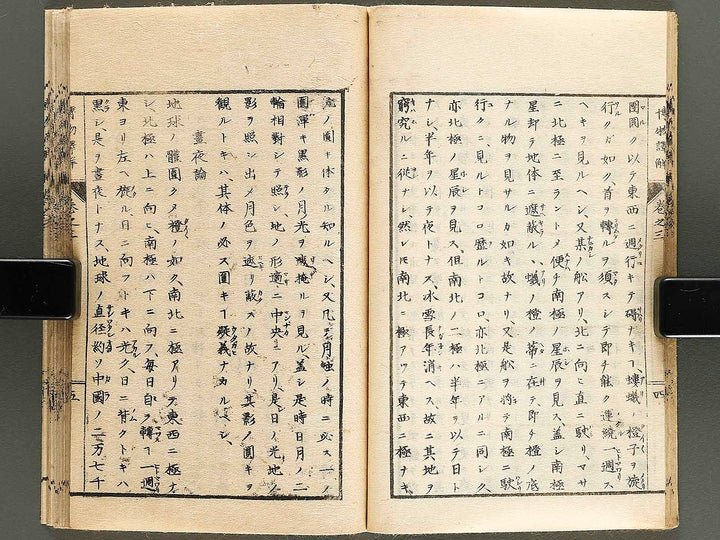 團圓ク以テ東西ニ週行キテ碍ナキヿ螻蟻ノ橙子ヲ旋
行クガ如ク首ヲ轉ルヲ須スシテ即チ能ク連続一週ス
ヘキヲ見ルヘシ又某ノ舩アリ北ニ向ヒ直ニ駛リマサ
ニ北極ニ至ラントメ便チ南極ノ星辰ヲ見ス蓋シ南極
星却テ地体ニ遮蔽ル蟻ノ橙ノ蔕ニ在テ即チ橙ノ底
ナル物ヲ見サルカ如キ故ナリ又是舩ヲ将テ南極ニ駛
行クニ見ルトコロ歴ルトコロ亦北極ニアルニ同シク
亦北極ノ星辰ヲ見ス但南北ノ二極ハ半年ヲ以テ日ト
ナシ半年ヲ以テ夜トナス氷雪長年消ヘス故ニ其地ヲ
窮究ルニ從ナシ然レ𪜈南北ニ極アツテ東西ニ極ナキ
卷之三
四
ノ圓キ体タル知ルヘシ又凡ソ月蝕ノ時ニ必ス一ノ
圓渾キ黒影ノ月光ヲ掩ルヲ見ル蓋シ是時日月ノ二
輪相對シテ照シ地ノ形適ニ中央ニアリ是日ノ光地ノ
影ヲ照シ出メ月色ヲ遮リ蔽スノ故ナリ其影ノ圓キヲ
観ルトキハ其体ノ必ス圓キヿ疑義ナカルヘシ
晝夜論
地球ノ體圓クメ橙ノ如ク南北ニ極アリテ東西ニ極ナ
シ北極ハ上ニ向ヒ南極ハ下ニ向フ毎日自ラ轉テ一週
東ヨリ左ヘ旋ル日ニ向フトキハ光ク日ニ背クトキハ
黒シ是ヲ晝夜トナス地球ノ直径約ソ中國ノ二万七千
五